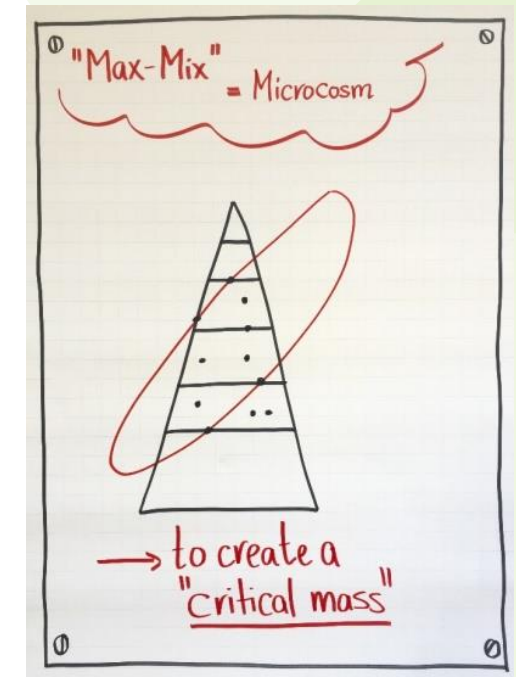 "Max-Mix"
= Microcosm
→ to create a
"critical mass"